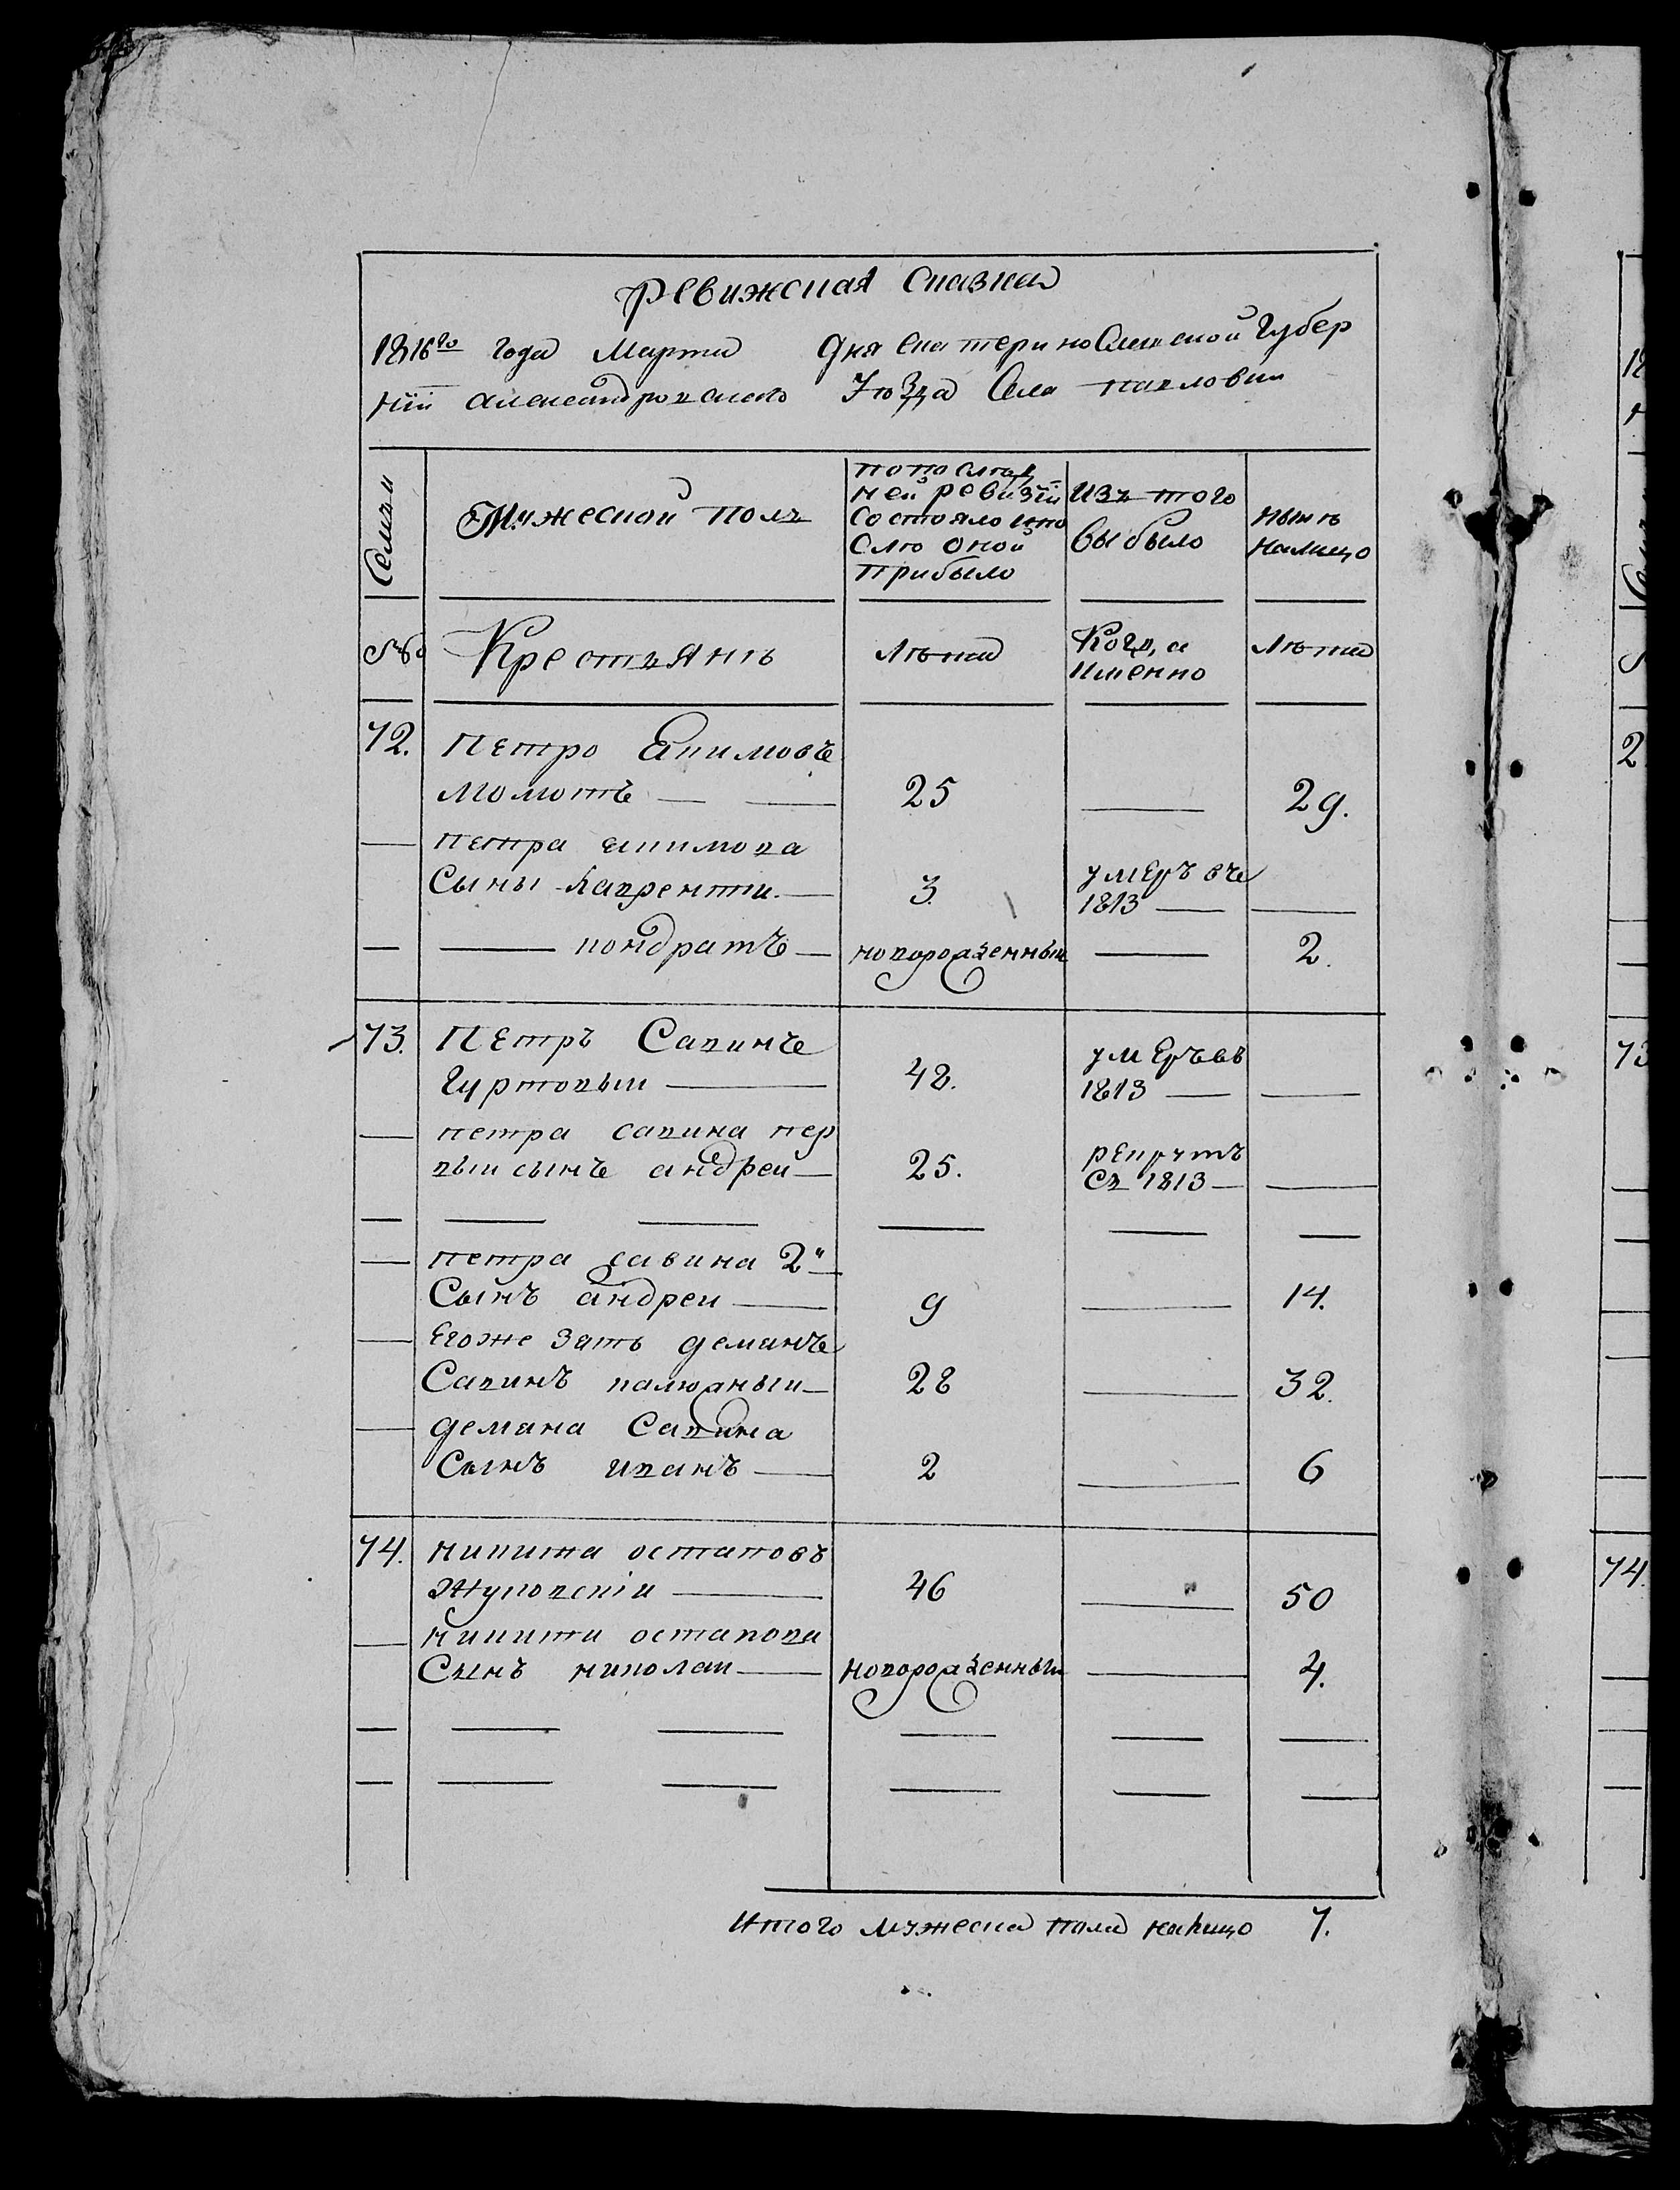 Ревижеская Сказка
1816го года Марта дня Екатеринославской Губер
нїи Александровского Уѣзда Села Павловки
Семьи
Мужеской Полъ
По послѣд
ней ревизїи
Состояло и по
слѣ оной
прибыло
Изъ того
выбыло
Нынѣ
налицо
Крестьянѣ
Лѣта
Когда
именно
Лѣта
72. Петро Екимовъ
Момотъ — — 25 — 29.
— Петра екимова
Сыны Лаврентїи — 3. умеръ въ
1813 — —
— — кондратъ — новорожденныи — 2.
73. Петръ Савинъ
Гуртовыи — 48. умеръ въ
1813 — —
— петра савина пер
выи сынъ андреи — 25. рекрутъ
Съ 1813 — —
— — — — — —
— петра савина 2й
Сынъ андреи — 9 — 14.
— Егоже зять демянъ
Савинъ калюжныи — 28 — 32.
— демяна Савина
Сынъ иванъ — 2 — 6
74. никита остаповъ
Жуковскїи — 46 — 50
— никиты остапова
Сынъ николаи — новорожденныи — 4.
— — — — — —
— — — — — —
Итого мужеска пола налицо 7.
72
73
74.